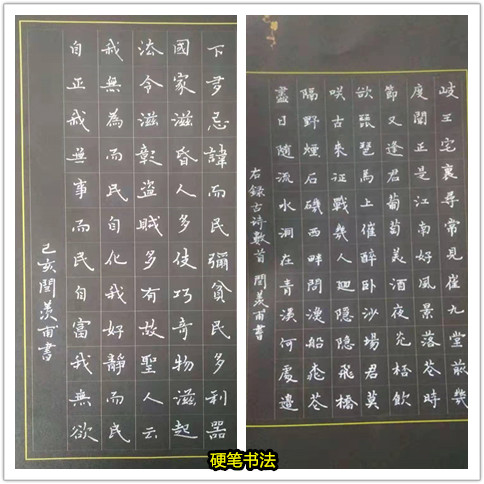 下多忌諱而民彌貧民多利器
國家滋昏人多伎巧奇物滋起
法令滋彰盜賊多有故聖人云
我無為而民自化我好靜而民
自正我無事而民自富我無欲
己亥閏羨甫書
岐王宅裏尋常見崔九堂前幾
度聞正是江南好風景落花時
節又逢君葡萄美酒夜光杯飲
欲琵琶馬上催醉卧沙場君莫
咲古來征戰幾人迴隱隱飛橋
隔野煙石磯西畔問漁船桃花
盡日隨流水洞在青溪何處邊
右錄古诗數首 閏羨甫書
硬笔书法